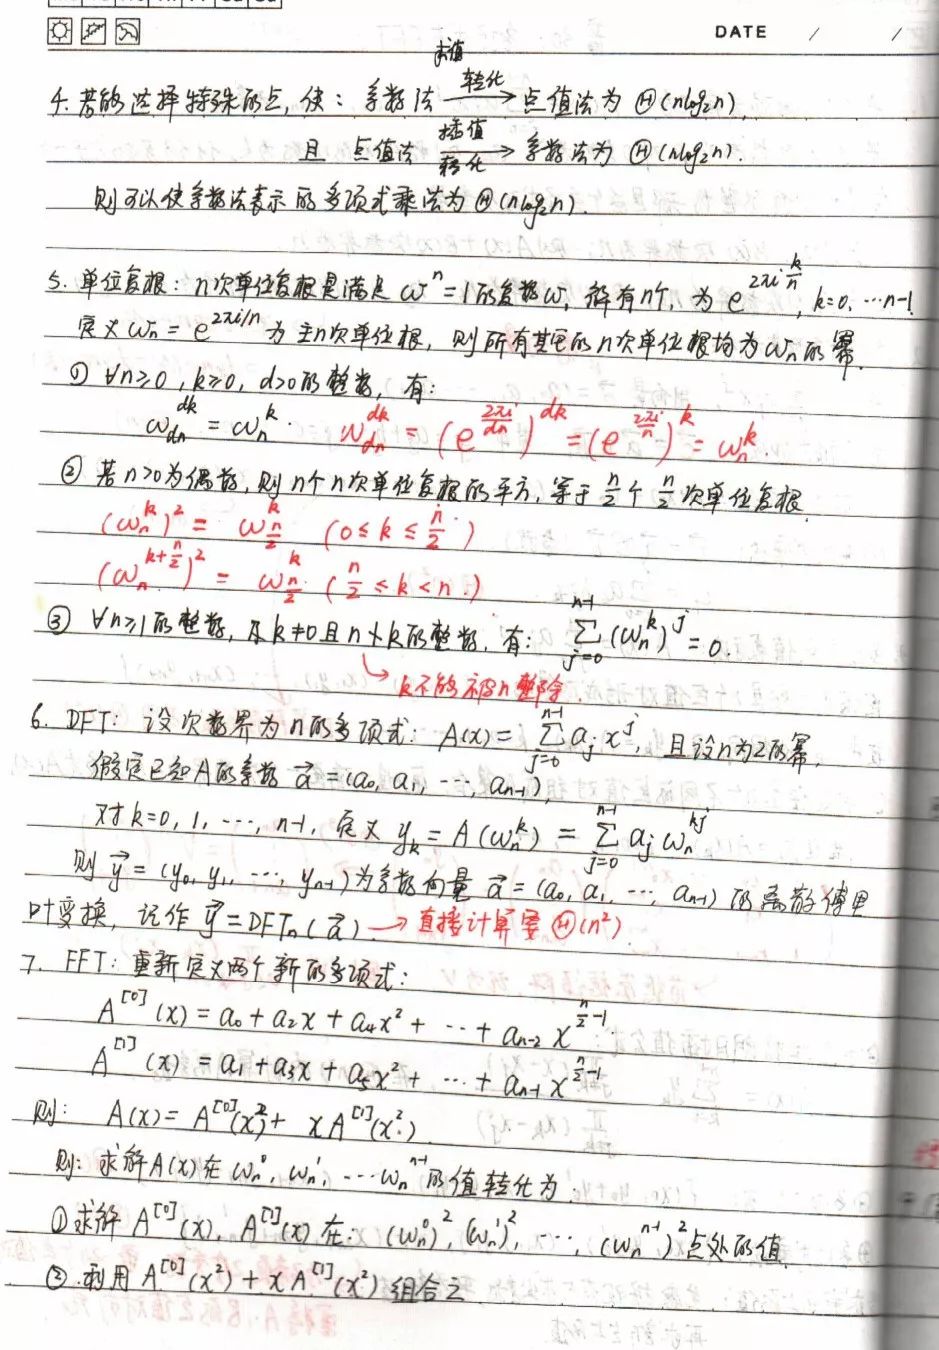 DATE / /
求值
4. 若能选择特殊的点, 使: 系数法 —转化→ 点值法为 Θ(nlog₂n)
且 点值法 —插值 转化→ 系数法为 Θ(nlog₂n).
则可以使系数法表示的多项式乘法为 Θ(nlog₂n).
5. 单位复根: n次单位复根是满足 ω^n = 1 的复数ω, 解有n个, 为 e^{2πi k/n}, k=0, …n-1.
定义 ω_n = e^{2πi/n} 为主n次单位根, 则所有其它的n次单位根均为 ω_n 的幂.
① ∀n≥0, k≥0, d>0 的整数, 有:
ω_{dn}^{dk} = ω_n^k. ω_{dn}^{dk} = (e^{2πi/dn})^{dk} = (e^{2πi/n})^k = ω_n^k.
② 若 n>0 为偶数, 则 n个n次单位复根的平方, 等于 n/2 个 n/2 次单位复根.
(ω_n^k)^2 = ω_{n/2}^k (0 ≤ k ≤ n/2)
(ω_n^{k+n/2})^2 = ω_{n/2}^k (n/2 ≤ k < n)
③ ∀n≥1 的整数, 及 k≠0 且 n∤k 的整数, 有: ∑_{j=0}^{n-1} (ω_n^k)^j = 0.
↳ k不能被n整除.
6. DFT: 设次数界为n的多项式: A(x) = ∑_{j=0}^{n-1} a_j x^j, 且设n为2的幂,
假定已知A的系数 a⃗ = (a₀, a₁, …, a_{n-1}),
对 k=0, 1, …, n-1, 定义 y_k = A(ω_n^k) = ∑_{j=0}^{n-1} a_j ω_n^{kj}
则 y⃗ = (y₀, y₁, …, y_{n-1}) 为系数向量 a⃗ = (a₀, a₁, …, a_{n-1}) 的离散傅里
叶变换, 记作 y⃗ = DFT_n(a⃗) → 直接计算要 Θ(n²)
7. FFT: 重新定义两个新的多项式:
A^{[0]}(x) = a₀ + a₂x + a₄x² + … + a_{n-2} x^{n/2-1}
A^{[1]}(x) = a₁ + a₃x + a₅x² + … + a_{n-1} x^{n/2-1}
则: A(x) = A^{[0]}(x²) + xA^{[1]}(x²)
则: 求解A(x)在 ω_n^0, ω_n^1, …ω_n^{n-1} 的值转化为:
① 求解 A^{[0]}(x), A^{[1]}(x) 在: (ω_n^0)², (ω_n^1)², …, (ω_n^{n-1})² 点处的值
② 利用 A^{[0]}(x²) + xA^{[1]}(x²) 组合之